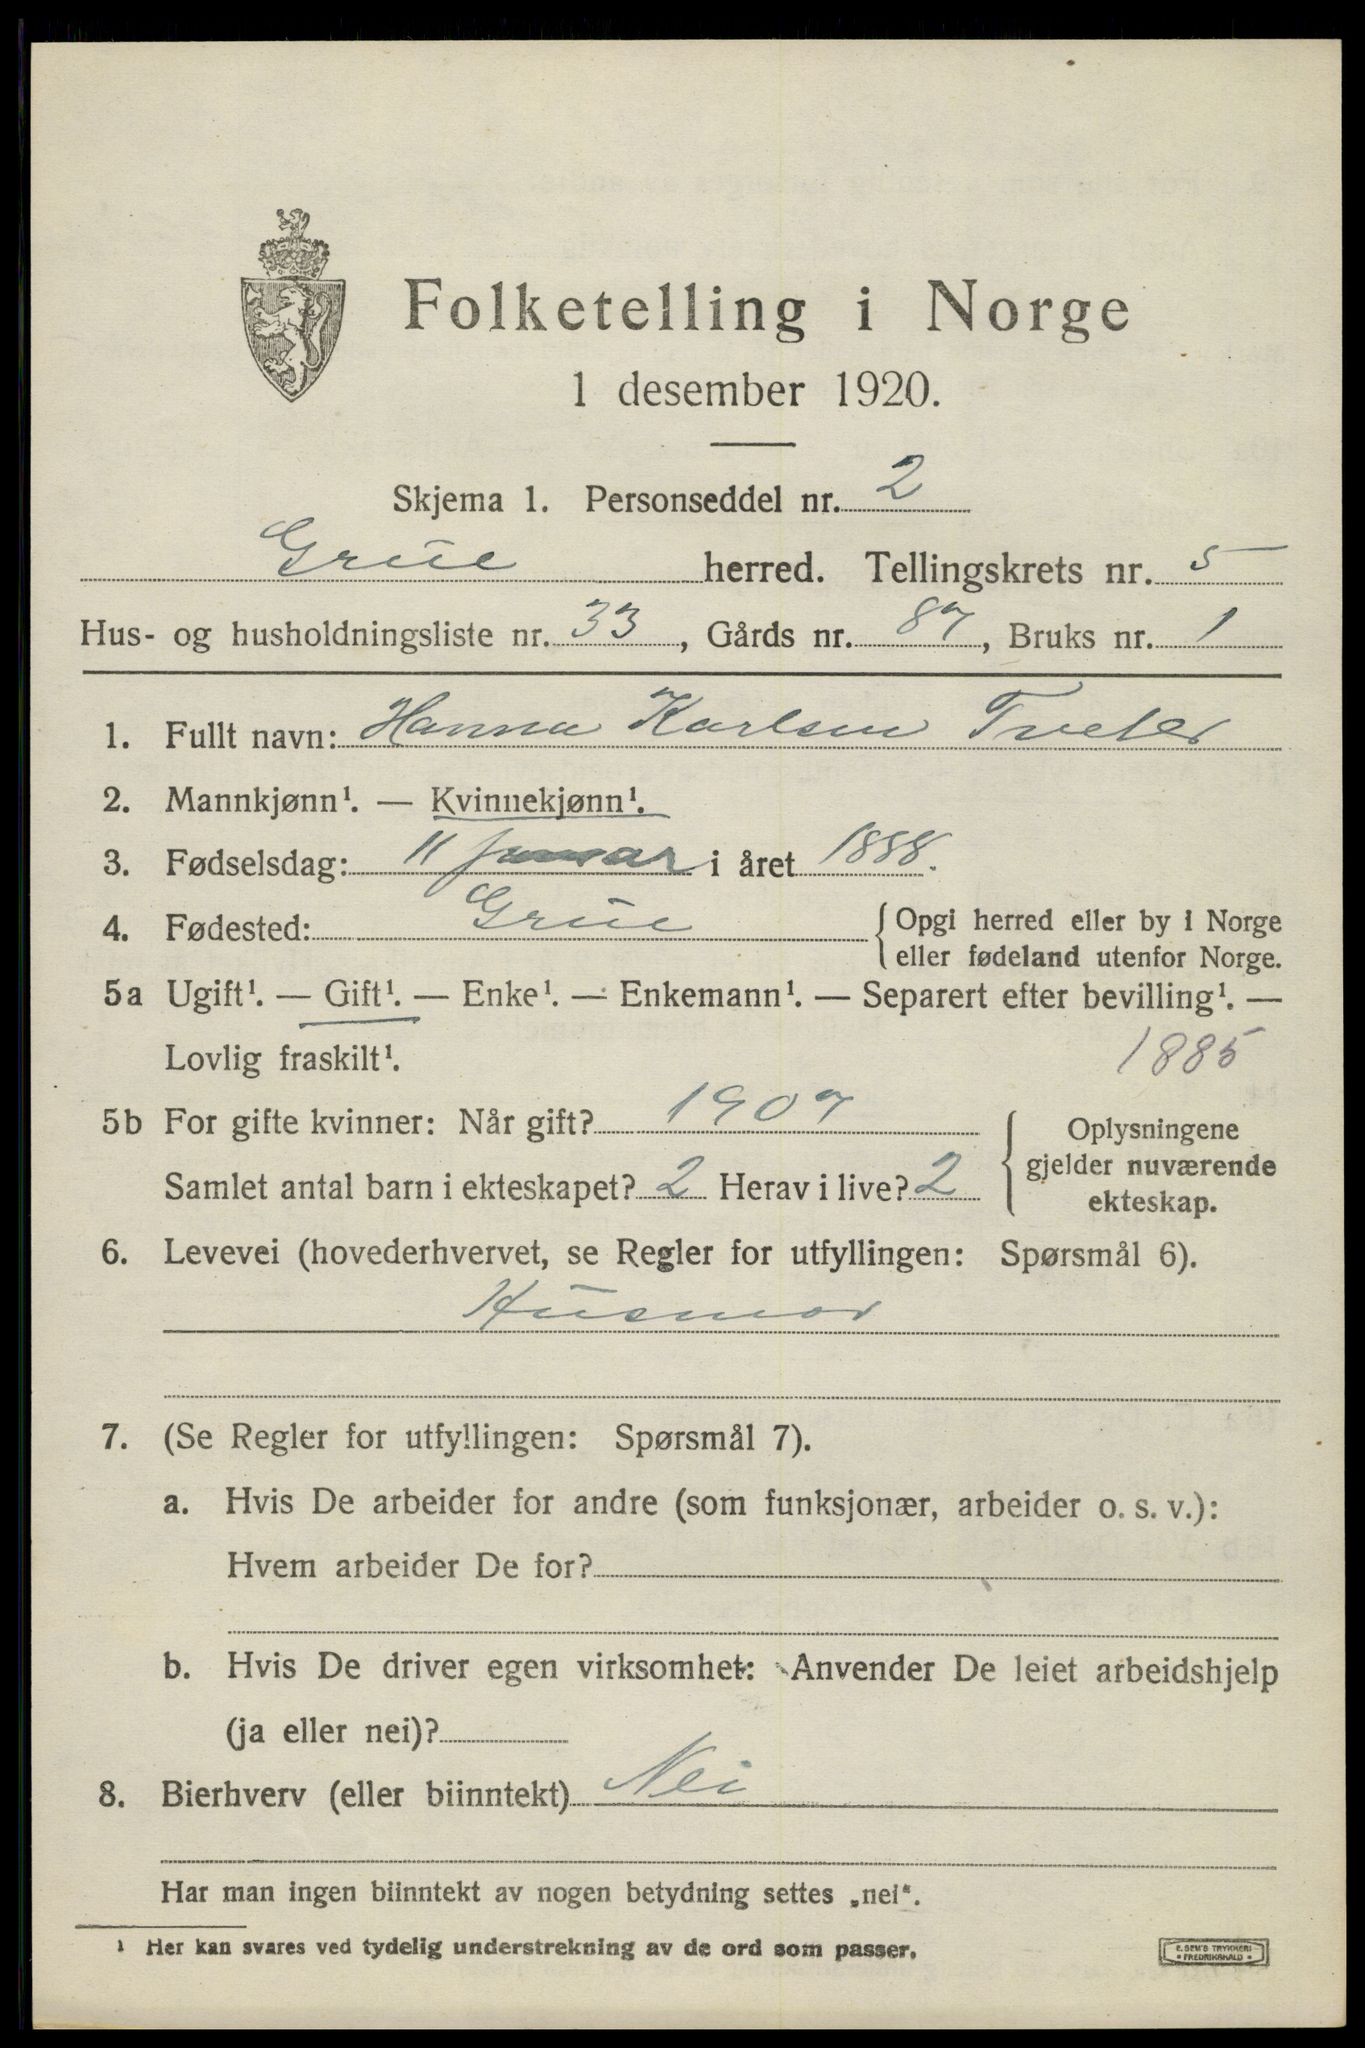 Folketelling i Norge
1 desember 1920.
Skjema 1. Personseddel nr. 2
Grue herred. Tellingskrets nr. 5
Hus- og husholdningsliste nr. 33, Gårds nr. 87, Bruks nr. 1
1. Fullt navn: Hanna Karlsen Tveter
2. Mannkjønn¹. — Kvinnekjønn¹.
3. Fødselsdag: 11 januar i året 1888.
4. Fødested: Grue { Opgi herred eller by i Norge
eller fødeland utenfor Norge.
5a Ugift¹. — Gift¹. — Enke¹. — Enkemann¹. — Separert efter bevilling¹. —
Lovlig fraskilt¹. 1885
5b For gifte kvinner: Når gift? 1907
Samlet antal barn i ekteskapet? 2 Herav i live? 2
{ Oplysningene
gjelder nuværende
ekteskap.
6. Levevei (hovederhvervet, se Regler for utfyllingen: Spørsmål 6).
Husmor
7. (Se Regler for utfyllingen: Spørsmål 7).
a. Hvis De arbeider for andre (som funksjonær, arbeider o. s. v.):
Hvem arbeider De for?
b. Hvis De driver egen virksomhet: Anvender De leiet arbeidshjelp
(ja eller nei)?
8. Bierhverv (eller biinntekt) Nei
Har man ingen biinntekt av nogen betydning settes „nei“.
¹ Her kan svares ved tydelig understrekning av de ord som passer.
E. SEM'S TRYKKERI
• FREDRIKSHALD •